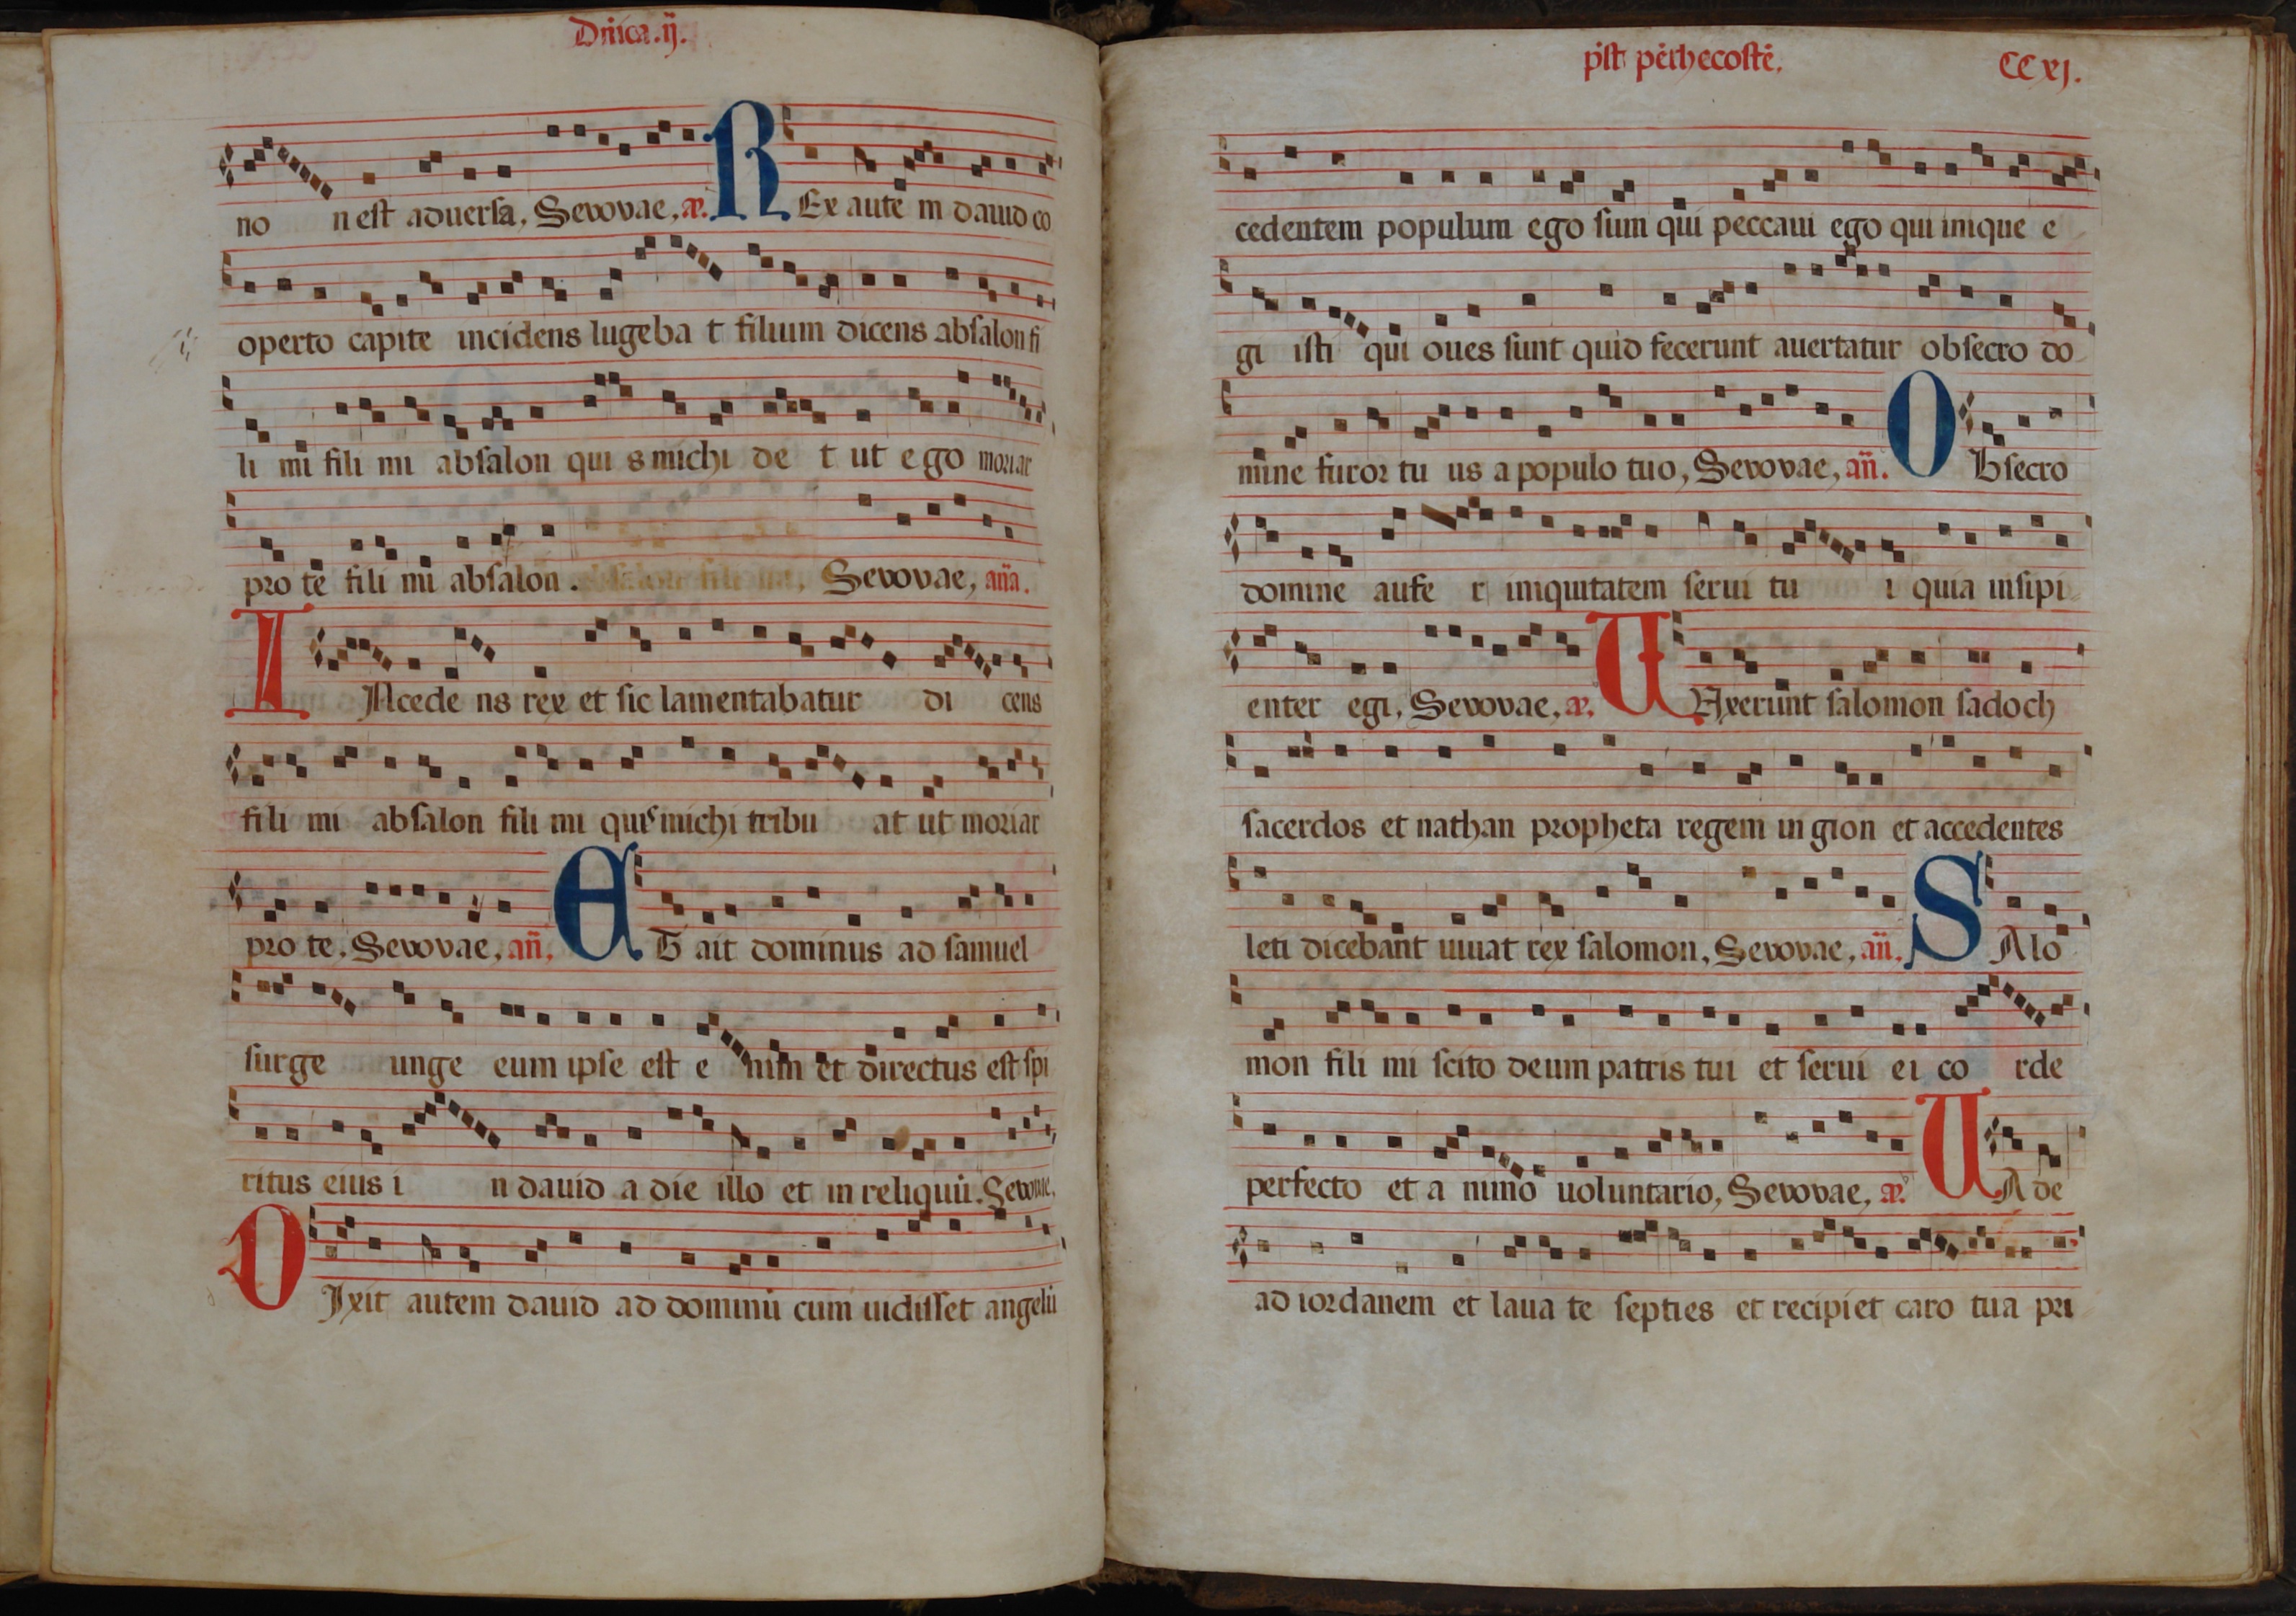 Dñica.ij.
no n est aduersa, Seuouae, aͤ. REx aute m dauid co
operto capite incidens lugeba t filium dicens absalon fi
li mi fili mi absalon qui s michi de t ut ego moriar
pro te fili mi absalon. absalon fili mi, Seuouae, aña.
INcede ns rex et sic lamentabatur di cens
fili mi absalon fili mi quis michi tribu at ut moriar
pro te. Seuouae, añ, ET ait dominus ad samuel
surge unge eum ipse est e nim et directus est spi
ritus eius i n dauid a die illo et in reliquū. Seuouae,
DIxit autem dauid ad dominū cum uidisset angelū
pꝰst pēthecostē. CCxj.
cedentem populum ego sum qui peccaui ego qui inique e
gi isti qui oues sunt quid fecerunt auertatur obsecro do
mine furor tu us a populo tuo, Seuouae, añ. OBsecro
domine aufe r iniquitatem serui tu i quia insipi
enter egi, Seuouae, aͤ, UNxerunt salomon sadoch
sacerdos et nathan propheta regem in gion et accedentes
leti dicebant uiuat rex salomon, Seuouae, añ, SAlo
mon fili mi scito deum patris tui et serui ei co rde
perfecto et a nimo uoluntario, Seuouae, aͤ. UAde
ad iordanem et laua te septies et recipiet caro tua pri